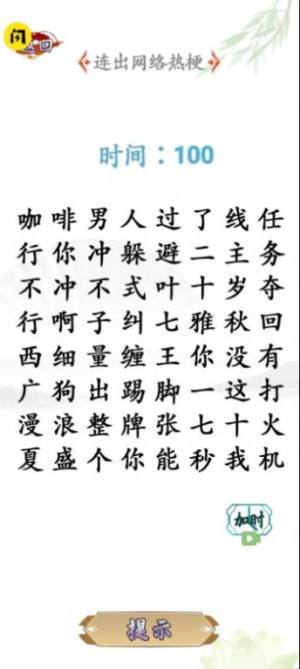 闪回
连出网络热梗
时间：100
咖啡男人过了线任
行你冲躲避二主务
不冲不式叶十岁夺
行啊子纠七雅秋回
西细量缠王你没有
广狗出踢脚一这打
漫浪整牌张七十火
夏盛个你能秒我机
加时
提示